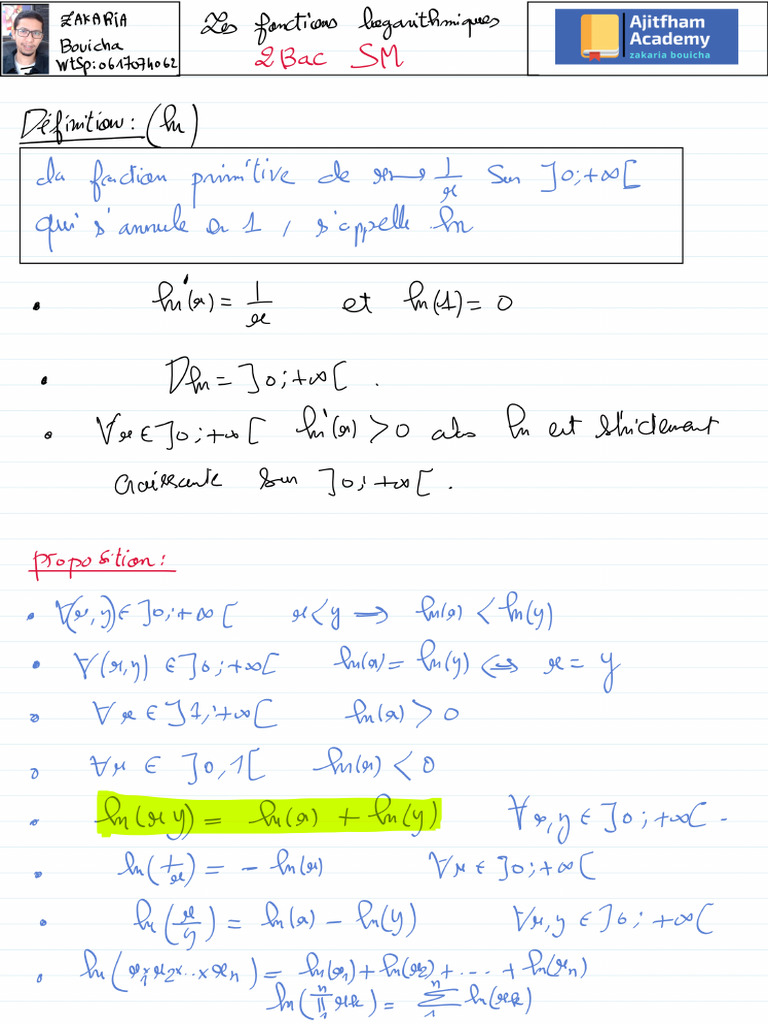 ZAKARIA
Bouicha
WtSp: 0617074062
Les fonctions logarithmiques
2Bac SM
Ajitfham
Academy
zakaria bouicha
Définition: (ln)
La fonction primitive de x ↦ 1/x sur ]0;+∞[
qui s'annule en 1, s'appelle ln
• ln'(x) = 1/x et ln(1) = 0
• Dln = ]0;+∞[.
• ∀x ∈ ]0;+∞[ ln'(x) > 0 alors ln est strictement
croissante sur ]0;+∞[.
proposition:
• ∀(x,y) ∈ ]0;+∞[ x < y ⟹ ln(x) < ln(y)
• ∀(x,y) ∈ ]0;+∞[ ln(x) = ln(y) ⟺ x = y
• ∀x ∈ ]1;+∞[ ln(x) > 0
• ∀x ∈ ]0,1[ ln(x) < 0
• ln(xy) = ln(x) + ln(y) ∀x,y ∈ ]0;+∞[.
• ln(1/x) = - ln(x) ∀x ∈ ]0;+∞[
• ln(x/y) = ln(x) - ln(y) ∀x,y ∈ ]0;+∞[
• ln(x₁×x₂×...×xₙ) = ln(x₁) + ln(x₂) + ... + ln(xₙ)
ln(∏₁ⁿ xk) = ∑₁ⁿ ln(xk)